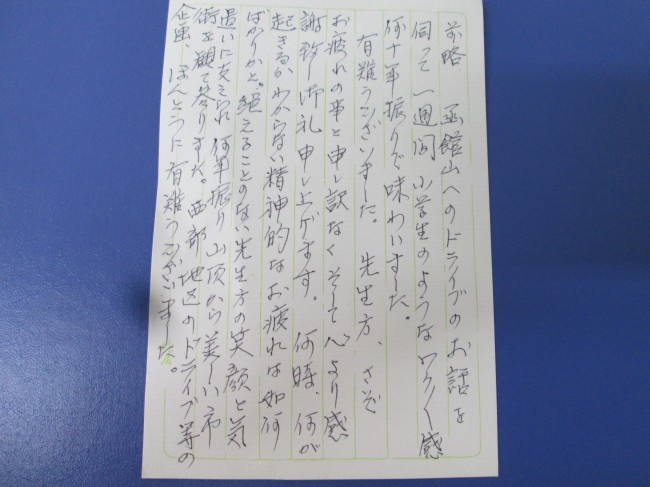 前略　函館山へのドライブのお話を
伺って一週間小学生のようなワクワク感
何十年振りで味わいました。
有難うございました。先生方、さぞ
お疲れの事と申し訳なくそして心より感
謝致し御礼申し上げます。何時、何が
起きるかわからない精神的なお疲れは如何
ばかりかと。絶えることのない先生方の笑顔と気
遣いに支えられ何年振り山頂から美しい市
街を観て参りました。西部地区のドライブ等の
企画、ほんとうに有難うございました。